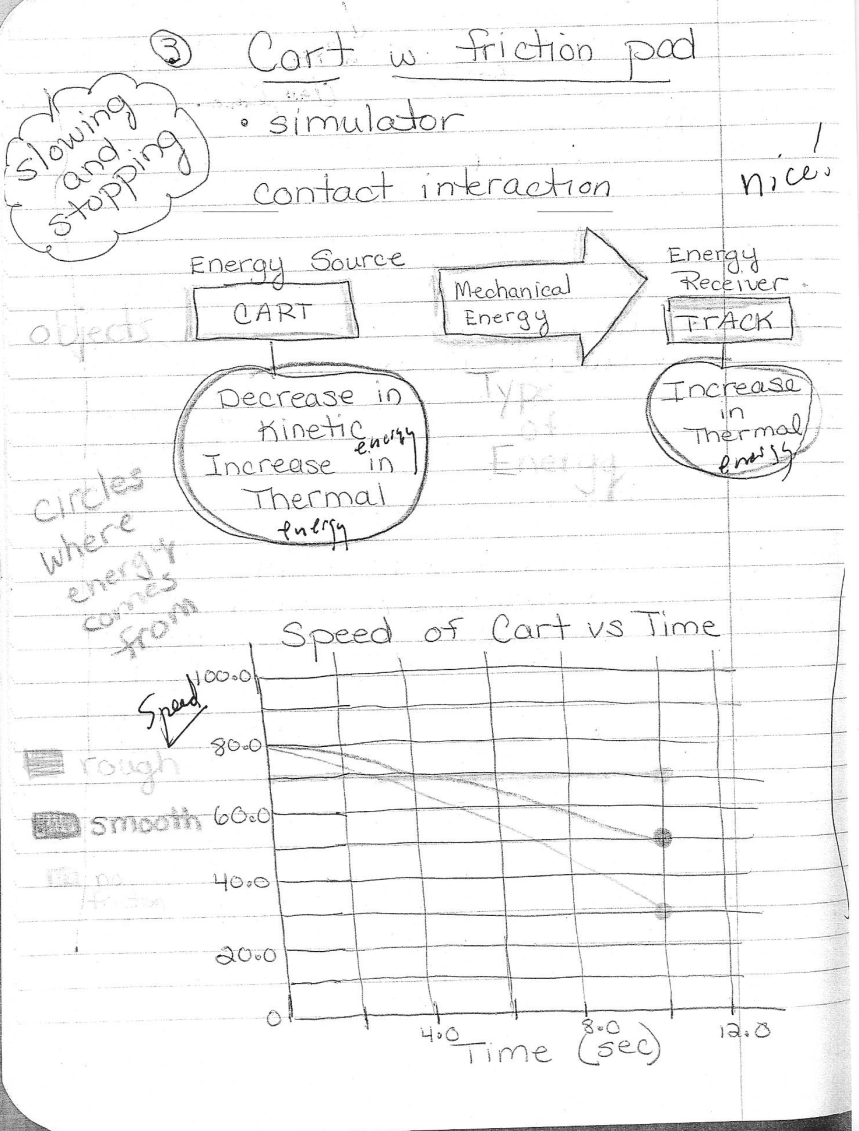 ③ Cart w friction pad
slowing
and
stopping
• simulator
contact interaction
nice!
Energy Source
CART
Mechanical
Energy
Energy
Receiver
TrACK
objects
Decrease in
Kinetic energy
Increase in
Thermal
energy
Type
of
Energy
Increase
in
Thermal
energy
circles
where
energy
comes
from
Speed of Cart vs Time
Speed
100.0
80.0
60.0
40.0
20.0
0
rough
smooth
no
friction
4.0
8.0
12.0
Time (sec)